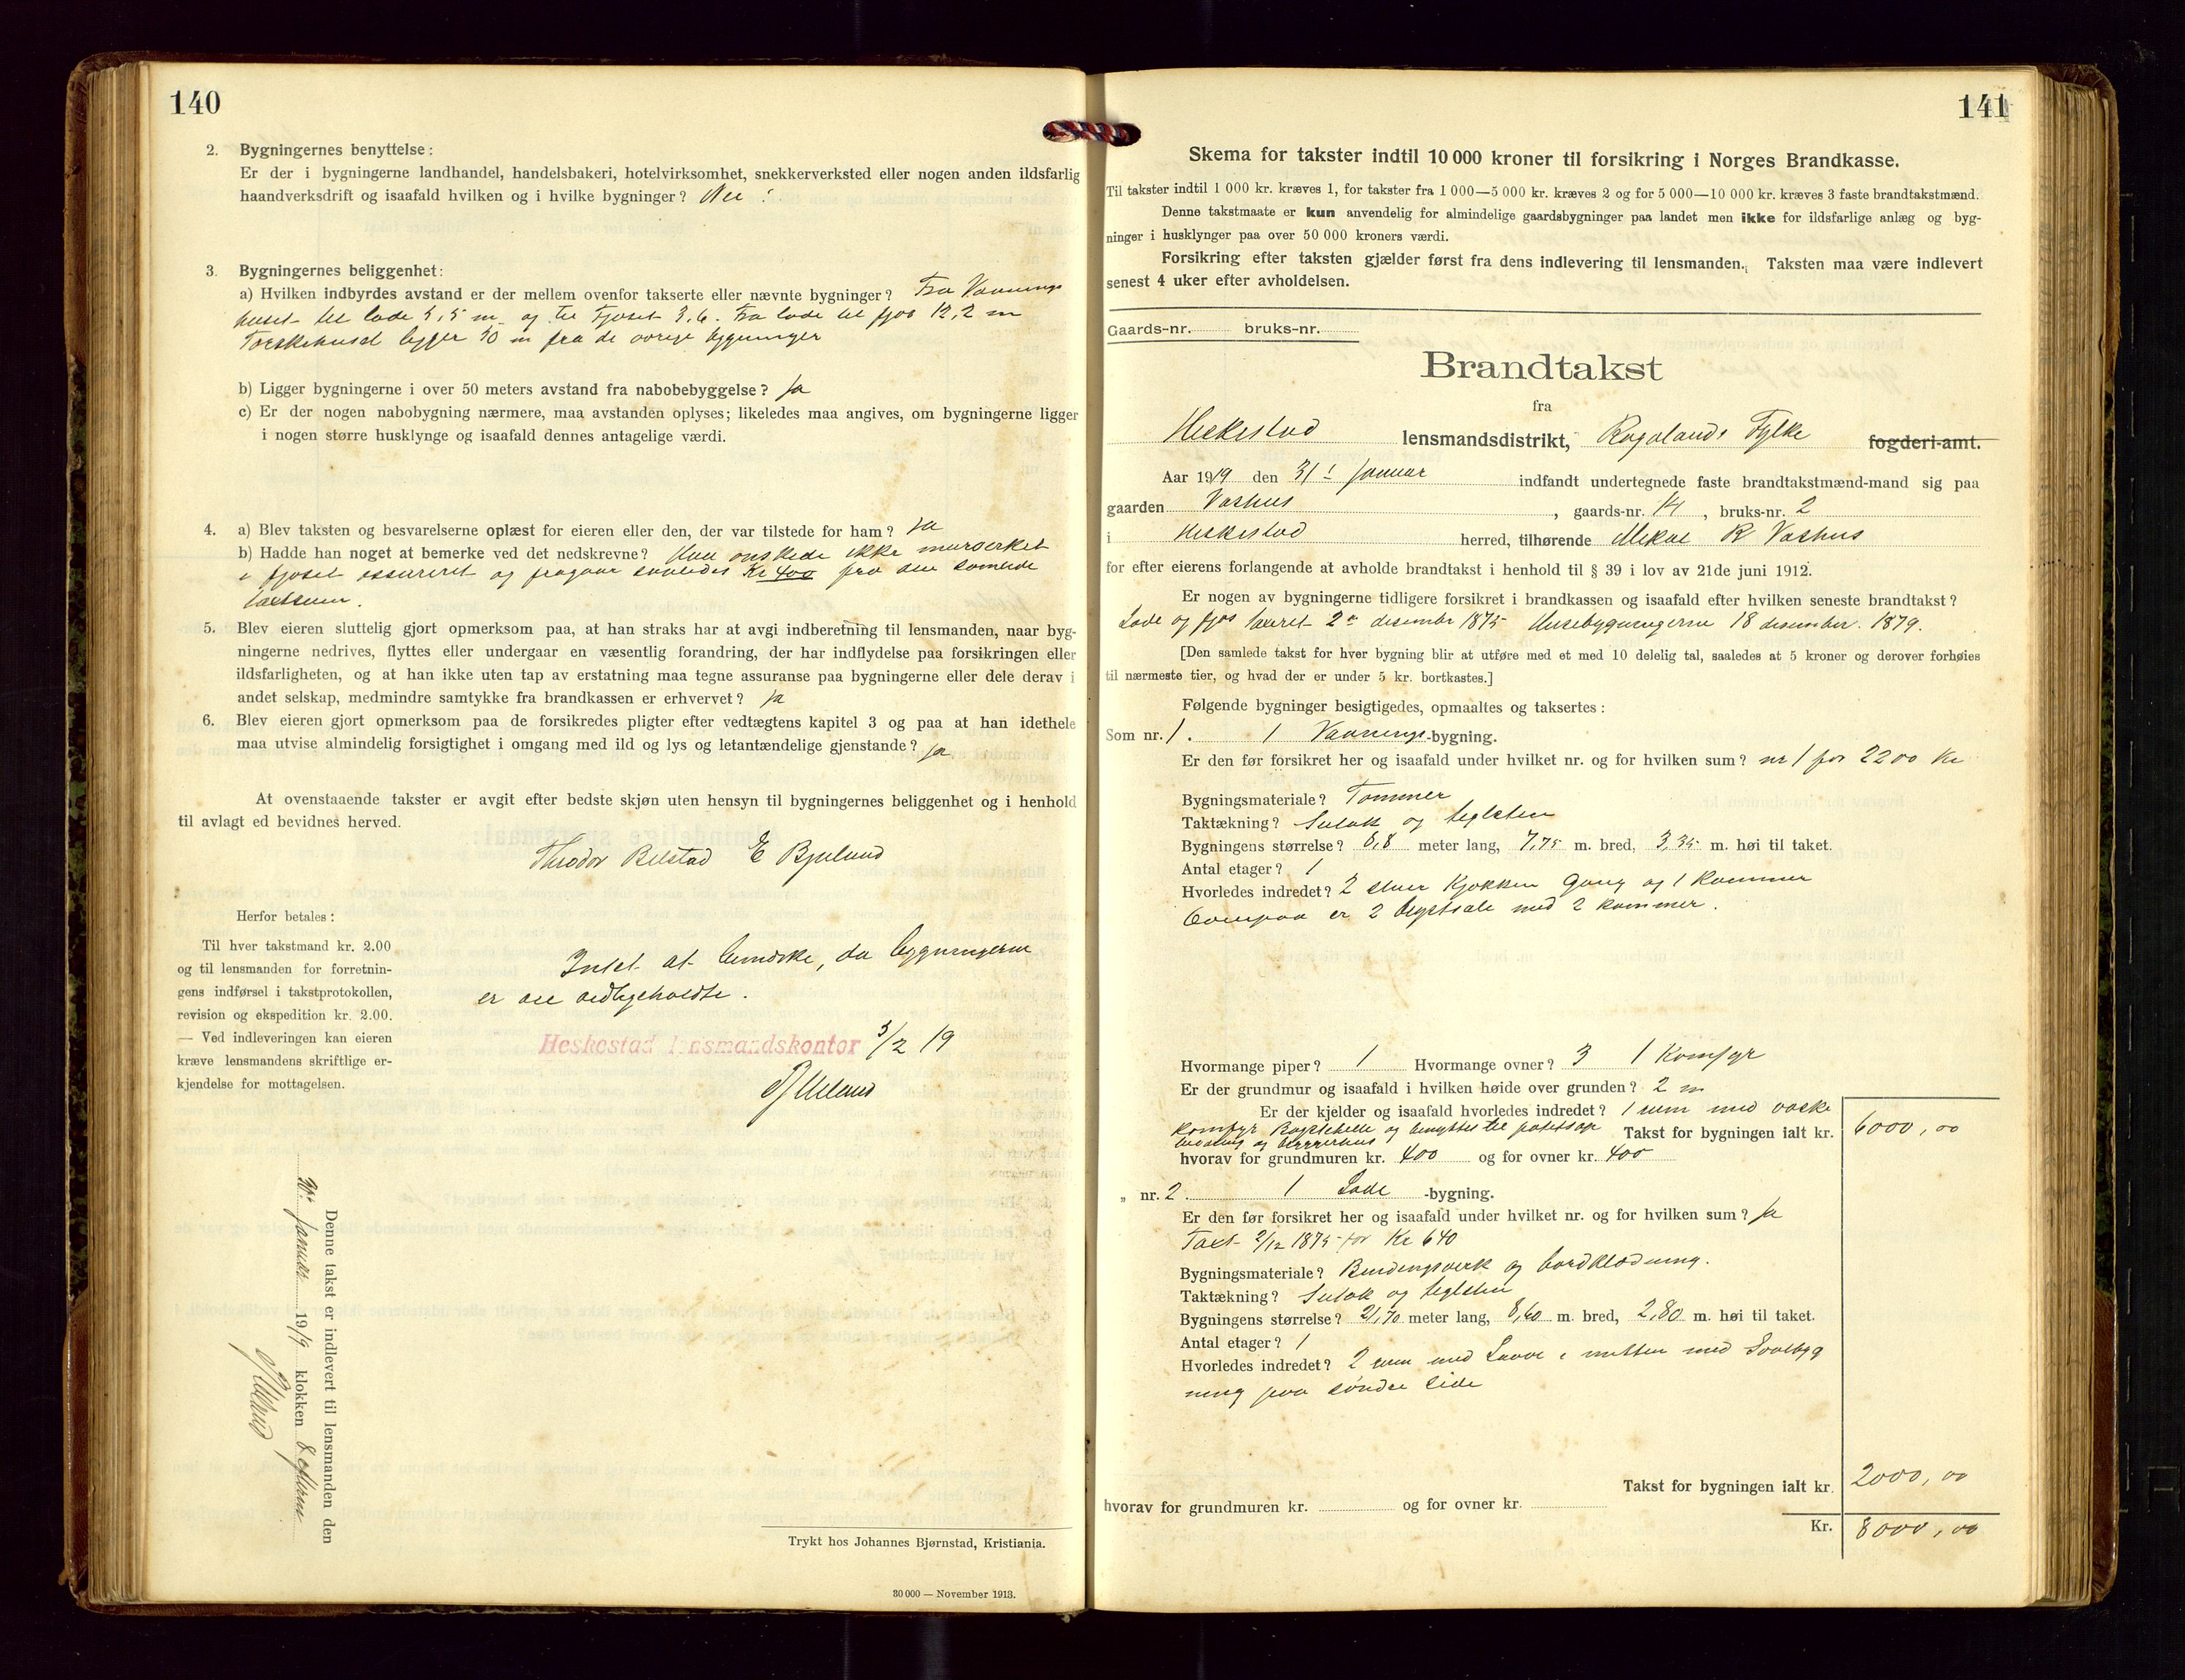 140
2. Bygningernes benyttelse:
Er der i bygningerne landhandel, handelsbakeri, hotelvirksomhet, snekkerverksted eller nogen anden ildsfarlig
haandverksdrift og isaafald hvilken og i hvilke bygninger? Nei
3. Bygningernes beliggenhet:
a) Hvilken indbyrdes avstand er der mellem ovenfor takserte eller nævnte bygninger? Fra Vaanings
huset til lade 5,5 m og til Fjøset 3,6. Fra lade til fjøs 12,2 m
Tærskehuset ligger 30 m fra de øvrige bygninger
b) Ligger bygningerne i over 50 meters avstand fra nabobebyggelse? Ja
c) Er der nogen nabobygning nærmere, maa avstanden oplyses; likeledes maa angives, om bygningerne ligger
i nogen større husklynge og isaafald dennes antagelige værdi.
4. a) Blev taksten og besvarelserne oplæst for eieren eller den, der var tilstede for ham? Ja
b) Hadde han noget at bemerke ved det nedskrevne? Han ønskede ikke murverket
i fjøset assureret og fragaar saaledes Kr 400 fra den samlede
taxtsum.
5. Blev eieren sluttelig gjort opmerksom paa, at han straks har at avgi indberetning til lensmanden, naar byg-
ningerne nedrives, flyttes eller undergaar en væsentlig forandring, der har indflydelse paa forsikringen eller
ildsfarligheten, og at han ikke uten tap av erstatning maa tegne assuranse paa bygningerne eller dele derav i
andet selskap, medmindre samtykke fra brandkassen er erhvervet? Ja
6. Blev eieren gjort opmerksom paa de forsikredes pligter efter vedtægtens kapitel 3 og paa at han idethele
maa utvise almindelig forsigtighet i omgang med ild og lys og letantændelige gjenstande? Ja
At ovenstaaende takster er avgit efter bedste skjøn uten hensyn til bygningernes beliggenhet og i henhold
til avlagt ed bevidnes herved.
Theodor Bilstad E Bjuland
Herfor betales:
Til hver takstmand kr. 2.00
og til lensmanden for forretnin-
gens indførsel i takstprotokollen,
revision og ekspedition kr. 2.00.
— Ved indleveringen kan eieren
kræve lensmandens skriftlige er-
kjendelse for mottagelsen.
Intet at bemerke, da bygningerne
er vedligeholdte.
Heskestad lensmandskontor 3/2 19
Denne takst er indlevert til lensmanden den
Januar 1919 klokken 8
Trykt hos Johannes Bjørnstad, Kristiania.
30 000 — November 1913.
141
Skema for takster indtil 10 000 kroner til forsikring i Norges Brandkasse.
Til takster indtil 1 000 kr. kræves 1, for takster fra 1 000—5 000 kr. kræves 2 og for 5 000—10 000 kr. kræves 3 faste brandtakstmænd.
Denne takstmaate er kun anvendelig for almindelige gaardsbygninger paa landet men ikke for ildsfarlige anlæg og byg-
ninger i husklynger paa over 50 000 kroners værdi.
Forsikring efter taksten gjælder først fra dens indlevering til lensmanden. Taksten maa være indlevert
senest 4 uker efter avholdelsen.
Gaards-nr. bruks-nr.
Brandtakst
fra
Heskestad lensmandsdistrikt, Rogalands Fylke fogderi-amt.
Aar 1919 den 31 Januar indfandt undertegnede faste brandtakstmænd-mand sig paa
gaarden Vashus, gaards-nr. 14, bruks-nr. 2
i Heskestad herred, tilhørende Mikal R Vashus
for efter eierens forlangende at avholde brandtakst i henhold til § 39 i lov av 21de juni 1912.
Er nogen av bygningerne tidligere forsikret i brandkassen og isaafald efter hvilken seneste brandtakst?
Lade og fjøs taxeret 2 desembr 1875 Husebygningerne 18 desember. 1879.
[Den samlede takst for hver bygning blir at utføre med et med 10 delelig tal, saaledes at 5 kroner og derover forhøies
til nærmeste tier, og hvad der er under 5 kr. bortkastes.]
Følgende bygninger besigtigedes, opmaaltes og taksertes:
Som nr. 1. 1 Vaanings-bygning.
Er den før forsikret her og isaafald under hvilket nr. og for hvilken sum? nr 1 for 2200 Kr
Bygningsmateriale? Tømmer
Taktækning? Sutak og teglsten
Bygningens størrelse? 8,8 meter lang, 7,75 m. bred, 3,35 m. høi til taket.
Antal etager? 1
Hvorledes indredet? 2 stuer Kjøkken Gang og 1 Kammer
Ovenpaa er 2 loftsale med 2 kammer.
Hvormange piper? 1 Hvormange ovner? 3 1 Komfyr
Er der grundmur og isaafald i hvilken høide over grunden? 2 m
Er der kjelder og isaafald hvorledes indredet? 1 rum med vaske
komfyr og benyttes til potetop
og bryggerhus Takst for bygningen ialt kr. 6000,00
hvorav for grundmuren kr. 400 og for ovner kr. 400
„ nr. 2. 1 Lade -bygning.
Er den før forsikret her og isaafald under hvilket nr. og for hvilken sum? Ja
Taxt 2/12 1875 for Kr 640
Bygningsmateriale? Bindingsverk og bordklædning.
Taktækning? Sutak og teglsten
Bygningens størrelse? 21,70 meter lang, 8,60 m. bred, 2,80 m. høi til taket.
Antal etager? 1
Hvorledes indredet? 2 rum med Laave i mitten med Svalbyg
ning paa søndre side
Takst for bygningen ialt kr. 2000,00
hvorav for grundmuren kr. og for ovner kr.
Kr. 8000,00